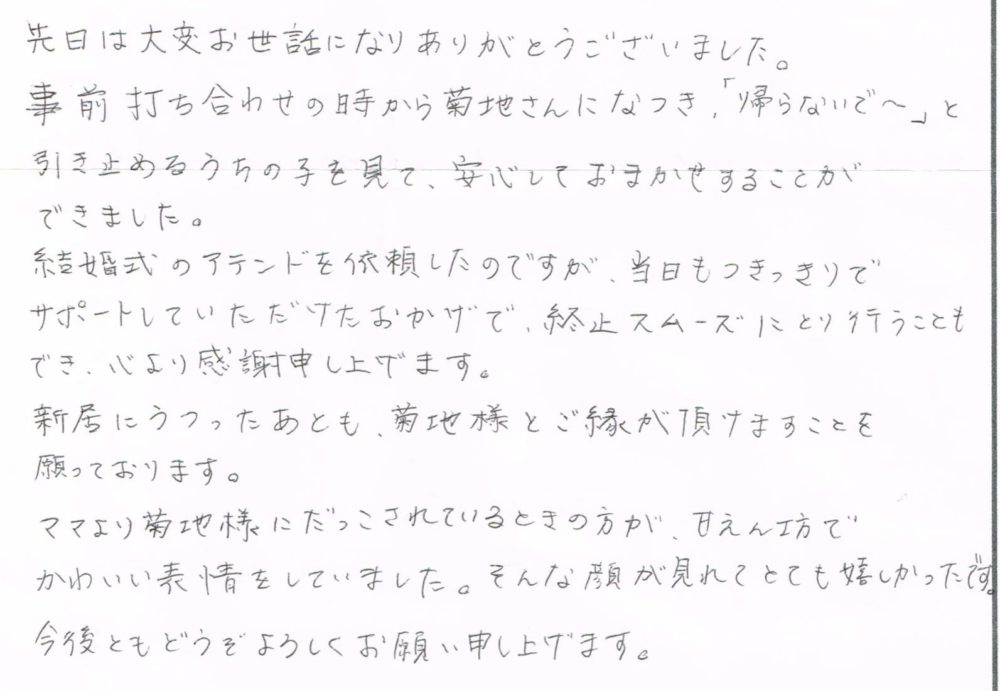 先日は大変お世話になりありがとうございました。
事前打ち合わせの時から菊地さんになつき、「帰らないで〜」と
引き止めるうちの子を見て、安心しておまかせすることが
できました。
結婚式のアテンドを依頼したのですが、当日もつきっきりで
サポートしていただけたおかげで、終止スムーズにとり行うことも
でき、心より感謝申し上げます。
新居にうつったあとも、菊地様とご縁が頂けますことを
願っております。
ママより菊地様にだっこされているときの方が、甘えん坊で
かわいい表情をしていました。そんな顔が見れてとても嬉しかったです。
今後ともどうぞよろしくお願い申し上げます。